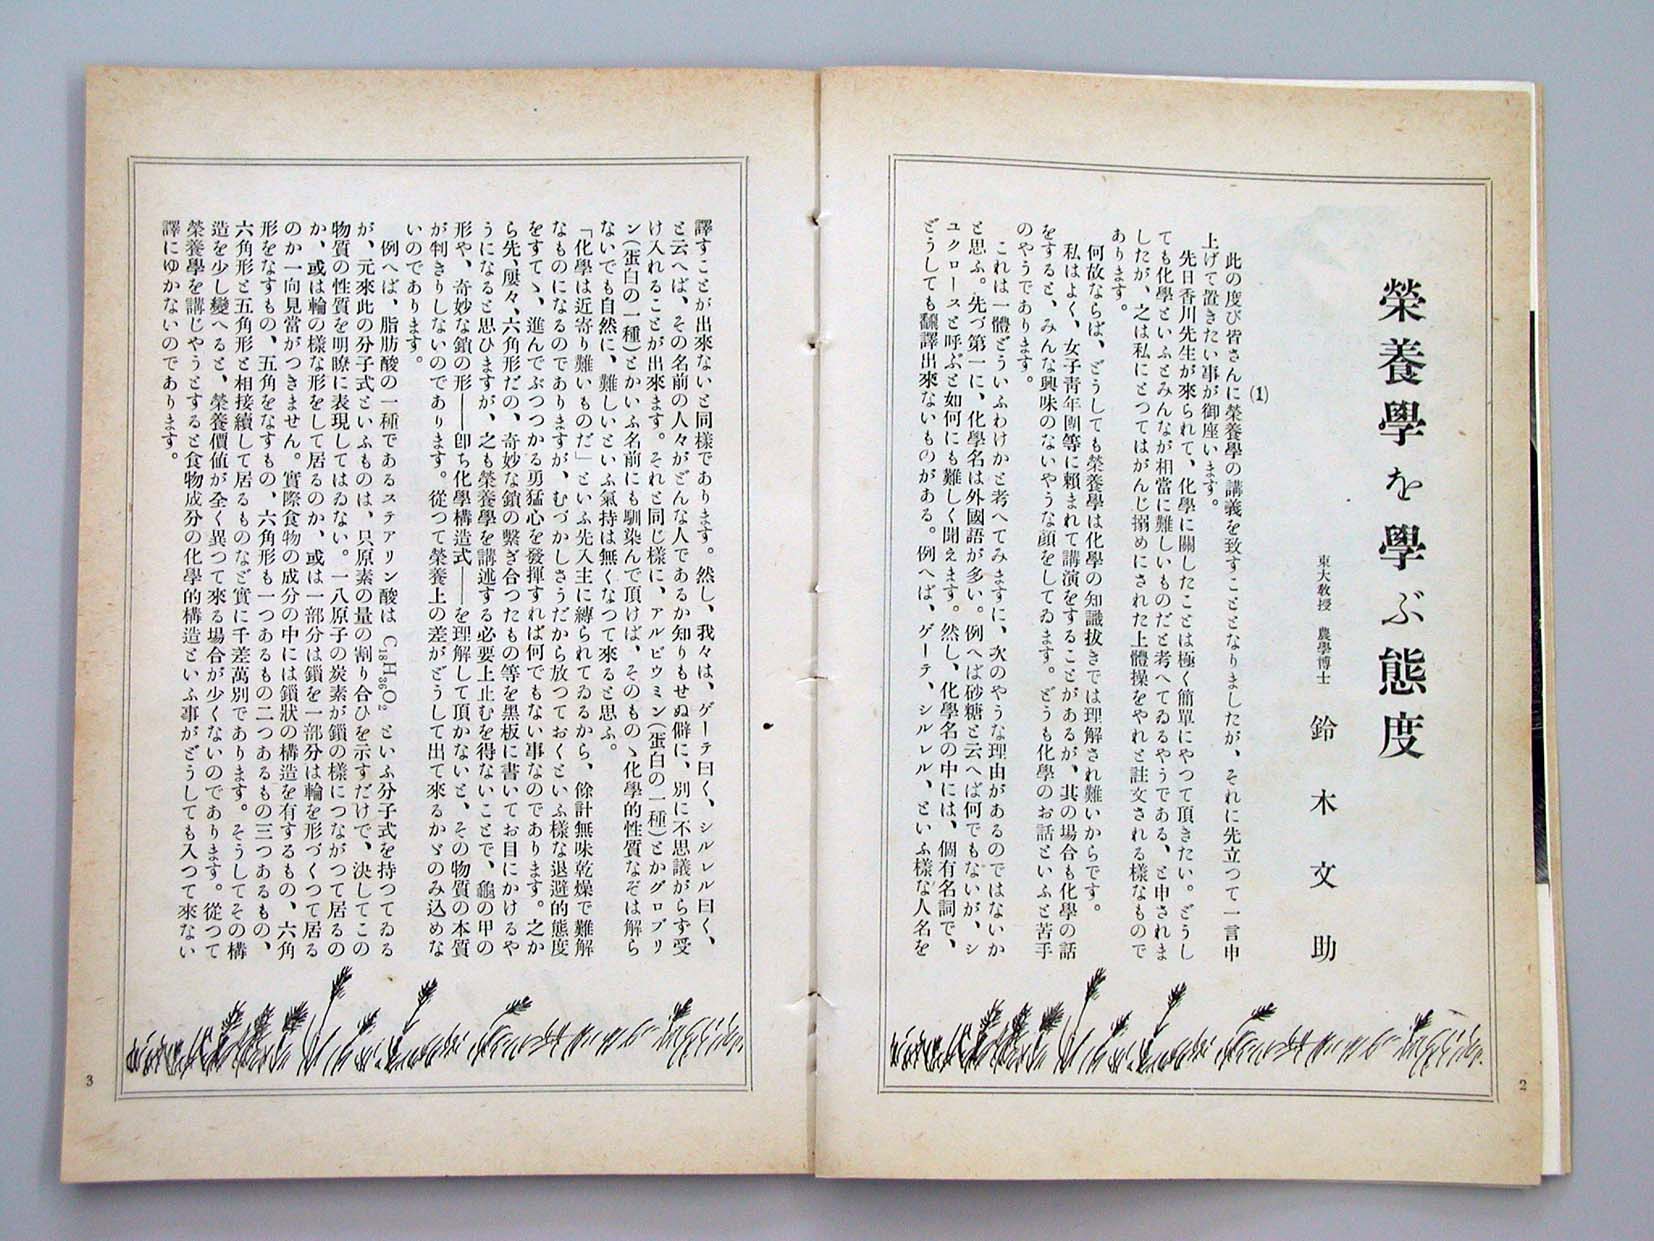 榮養學を學ぶ態度
東大敎授 農學博士 鈴木文助
(1)
此の度び皆さんに榮養學の講義を致すこととなりましたが、それに先立つて一言申
上げて置きたい事が御座います。
先日香川先生が來られて、化學に關したことは極く簡單にやつて頂きたい。どうし
ても化學といふとみんなが相當に難しいものだと考へてゐるやうである、と申されま
したが、之は私にとつてはがんじ搦めにされた上體操をやれと註文される樣なもので
あります。
何故ならば、どうしても榮養學は化學の知識拔きでは理解され難いからです。
私はよく、女子靑年團等に賴まれて講演をすることがあるが、其の場合も化學の話
をすると、みんな興味のないやうな顏をしてゐます。どうも化學のお話といふと苦手
のやうであります。
これは一體どういふわけかと考へてみますに、次のやうな理由があるのではないか
と思ふ。先づ第一に、化學名は外國語が多い。例へば砂糖と云へば何でもないが、シ
ュクロースと呼ぶと如何にも難しく聞えます。然し、化學名の中には、個有名詞で、
どうしても飜譯出來ないものがある。例へば、ゲーテ、シルレル、といふ樣な人名を
2
譯すことが出來ないと同樣であります。然し、我々は、ゲーテ曰く、シルレル曰く、
と云へば、その名前の人々がどんな人であるか知りもせぬ癖に、別に不思議がらず受
け入れることが出來ます。それと同じ樣に、アルビウミン(蛋白の一種)とかグロブリ
ン(蛋白の一種)とかいふ名前にも馴染んで頂けば、そのものゝ化學的性質なぞは解ら
ないでも自然に、難しいといふ氣持は無くなつて來ると思ふ。
「化學は近寄り難いものだ」といふ先入主に縛られてゐるから、餘計無味乾燥で難解
なものになるのでありますが、むづかしさうだから放つておくといふ樣な退避的態度
をすてゝ、進んでぶつつかる勇猛心を發揮すれば何でもない事なのであります。之か
ら先、屢々、六角形だの、奇妙な鎖の繫ぎ合つたもの等を黑板に書いてお目にかけるや
うになると思ひますが、之も榮養學を講述する必要上止むを得ないことで、龜の甲の
形や、奇妙な鎖の形――卽ち化學構造式――を理解して頂かないと、その物質の本質
が判きりしないのであります。從つて榮養上の差がどうして出て來るかゞのみ込めな
いのであります。
例へば、脂肪酸の一種であるステアリン酸は C₁₈H₃₆O₂ といふ分子式を持つてゐる
が、元來此の分子式といふものは、只原素の量の割り合ひを示すだけで、決してこの
物質の性質を明瞭に表現してはゐない。一八原子の炭素が鎖の樣につながつて居るの
か、或は輪の樣な形をして居るのか、或は一部分は鎖を一部分は輪を形づくつて居る
のか一向見當がつきません。實際食物の成分の中には鎖狀の構造を有するもの、六角
形をなすもの、五角をなすもの、六角形も一つあるもの二つあるもの三つあるもの、
六角形と五角形と相接續して居るものなど實に千差萬別であります。そうしてその構
造を少し變へると、榮養價値が全く異つて來る場合が少くないのであります。從つて
榮養學を講じやうとすると食物成分の化學的構造といふ事がどうしても入つて來ない
譯にゆかないのであります。
3